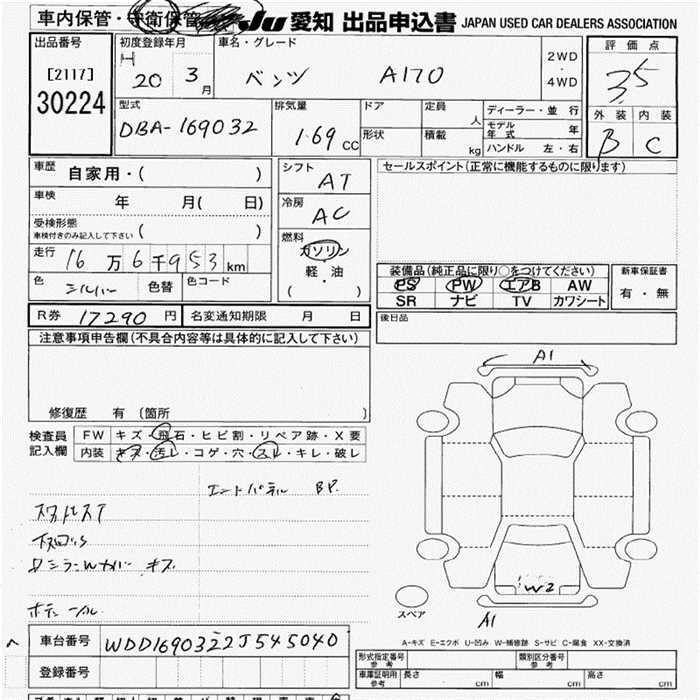 車内保管・守衛保管 JU 愛知 出品申込書 JAPAN USED CAR DEALERS ASSOCIATION
出品番号 初度登録年月 車名・グレード 評価点
[2117] H 20 3月 ベンツ A170 2WD・4WD 3.5
30224 型式 排気量 ドア 定員 人 ディーラー・並行 外装 内装
DBA-169032 1.69 CC 形状 積載 kg モデル年式 年 B C
ハンドル 左・右
車歴 自家用・( ) シフト AT セールスポイント(正常に機能するものに限ります)
車検 年 月( 日) 冷房 AC
受検形態 車検付きのみ記入して下さい ( )
走行 16万6千953km 燃料 ガソリン 軽・油 ( )
装備品(純正品に限り○をつけてください) 新車保証書
色 シルバー 色替 色コード PS PW エアB AW 有・無
SR ナビ TV カワシート
R券 17290円 名変通知期限 月 日 後日品
注意事項申告欄(不具合内容等は具体的に記入して下さい)
A1
修復歴 有 (箇所 )
検査員記入欄 FW キズ・飛石・ヒビ割・リペア跡・X要
内装 キズ・汚レ・コゲ・穴・スレ・キレ・破レ
エンドパネル BP.
キズ
W2
スペア
A1
A-キズ E-エクボ U-凹み W-補修跡 S-サビ C-腐食 XX-交換済
車台番号 WDD1690322J545040
登録番号
形式指定番号 参考 類別区分番号 参考
車庫証明用 参考 長さ cm 幅 cm 高さ cm